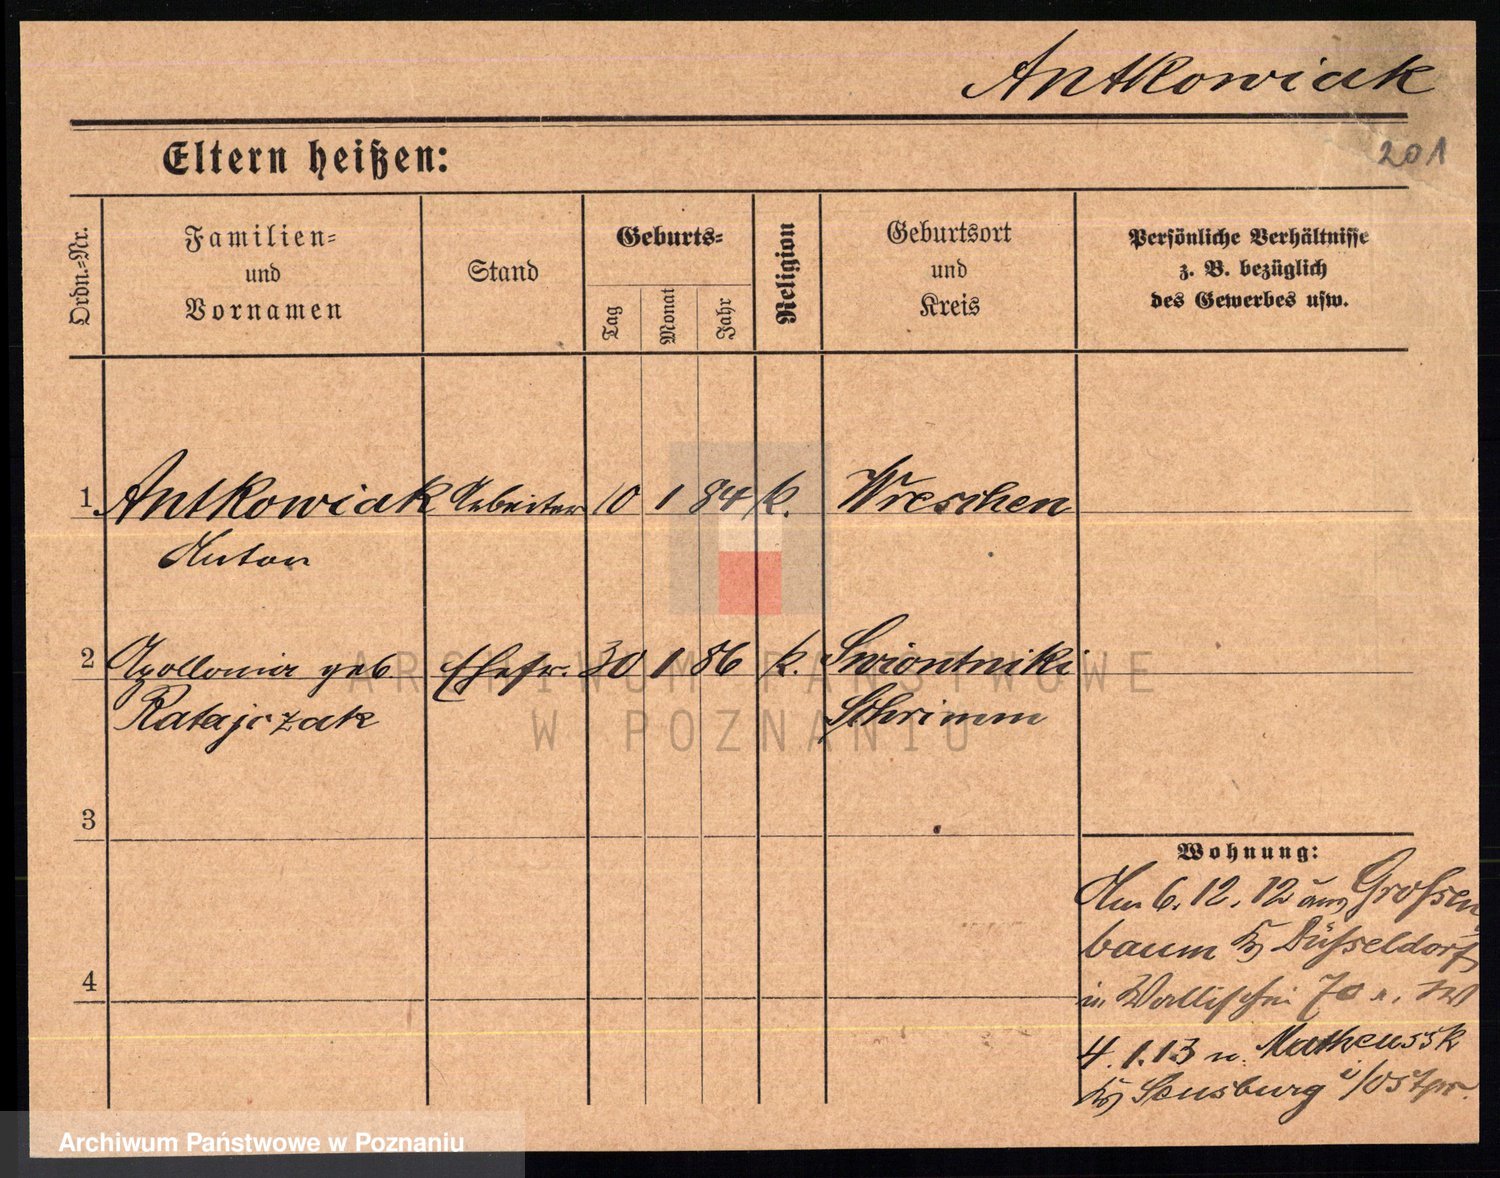 Antkowiak
201
Eltern heißen:
Ordn.-Nr.
Familien-
und
Vornamen
Stand
Geburts-
Tag
Monat
Jahr
Religion
Geburtsort
und
Kreis
Persönliche Verhältnisse
z. B. bezüglich
des Gewerbes usw.
1 Antkowiak Arbeiter 10 1 84 k. Wreschen
Anton
2 Apollonia geb Ehefr. 30 1 86 k. Swiontniki
Ratajczak Schrimm
3
4
Wohnung:
Am 6. 12. 12 aus Grossen
baum Kr Düsseldorf
in Wallischei 70
4. 1. 13 n. Matheussk
Kr Sensburg i/Ostpr.
ARCHIWUM PAŃSTWOWE
W POZNANIU
Archiwum Państwowe w Poznaniu